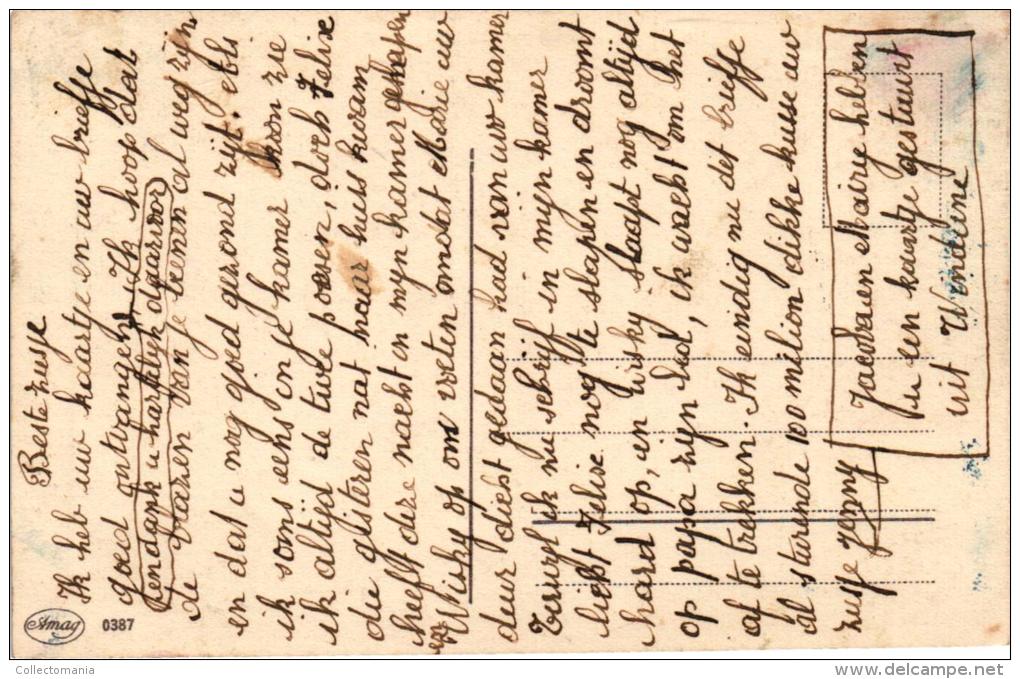 Beste zusje
Ik heb uw kaartje en uw brieffe
goed ontvangen, Ik hoop dat
en dank u hartlijk daarvoor
de blaren van je teenen al weg zijn
en dat u nog goed gezond zijt. ebs
ik soms eens in je kamer kron zie
ik altijd de twee poesen, doch Felixe
die glisteren nat naar huis kwam
heeft deze nacht in mijn kamer geslapen
en Wisky op ons weeten omdat Marie uw
deur dicht gedaan had van uw kamer
Terwijl ik nu schrijf in mijn kamer
licht Felixe nog te slapen en droomt
hard op, en Wisky slaapt nog altijd
op papa zijn bed, ik kracht om het
af te trekken. Ik eindig nu dit brieffe
al sturende 100 milion dikke kusse uw
zusje Jenny
Jacobaen Maire heben
nu een kaartje gestuurt
uit Wenduine
Amag 0387
Collectomania
www.delcampe.net